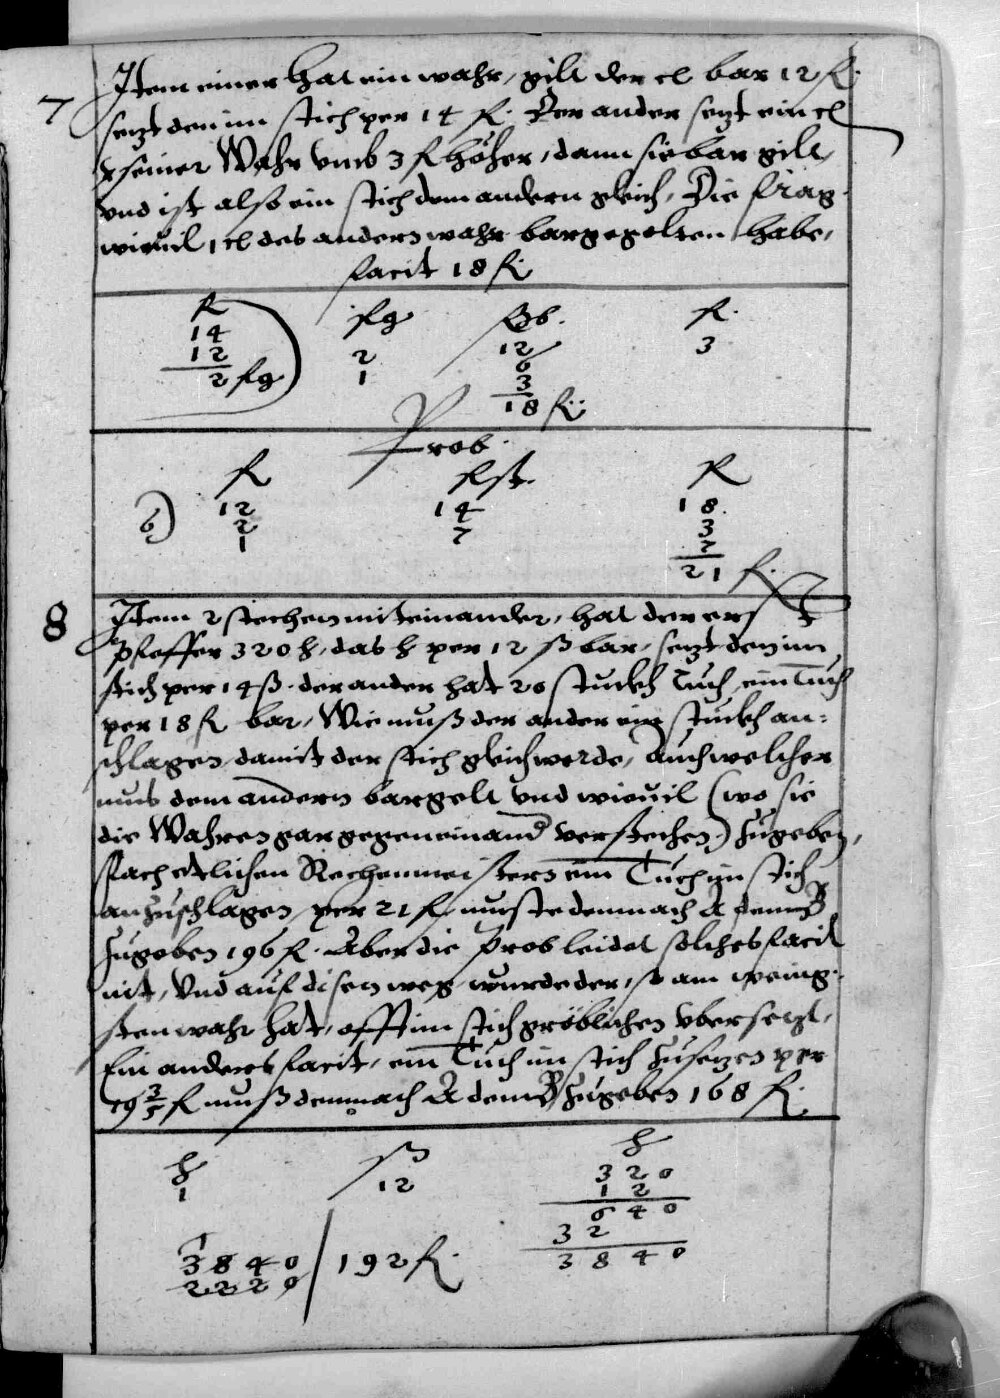 7
Item einer hat ein wahr, gilt der cl bar 12 fl.
setzt den im stich per 14 fl. Der ander setzt ein cl
seiner Wahr vmb 3 fl höher, dann sie bar gilt,
vnd ist also ein stich dem andern gleich, Die frag.
wieuil 1 cl des andern wahr bar gegolten habe,
facit 18 fl.
fl fl g fl fl.
14 2 12 3
12 1 6
2 fl g 3
18 fl.
Prob.
fl fl st. fl
6) 12 14 18.
2 7 3
1 21 fl.
8
Item 2 stechen miteinander, hat der erst
Pfeffer 320 lb, das lb per 12 ß bar, setzt den im
stich per 14 ß. der ander hat 20 stuckh Tuch, ein Tuch
per 18 fl bar, Wie muß der ander ein stuckh an=
schlagen, damit der stich gleich werde, Auch welcher
mus dem andern bargelt vnd wieuil (wo sie
die Wahren gar gegeneinand verstechen) zugeben,
Nach etlichen Rechenmeistern ein Tuch im stich
anzuschlagen, per 21 fl, muste demnach A dem B
zugeben 196 fl. Aber die prob leidet solches facit
nit, Vnd auf disen weg wurde der, so am wenig=
sten wahr hat, offt im stich gröblichen vbersetzt,
Ein anders facit, ein Tuch im stich zusetzen per
19 3/5 fl muß demnach A dem B zugeben 168 fl.
lb ß lb
1 12 320
12
640
32
3840
3840 | 192 fl.
2220